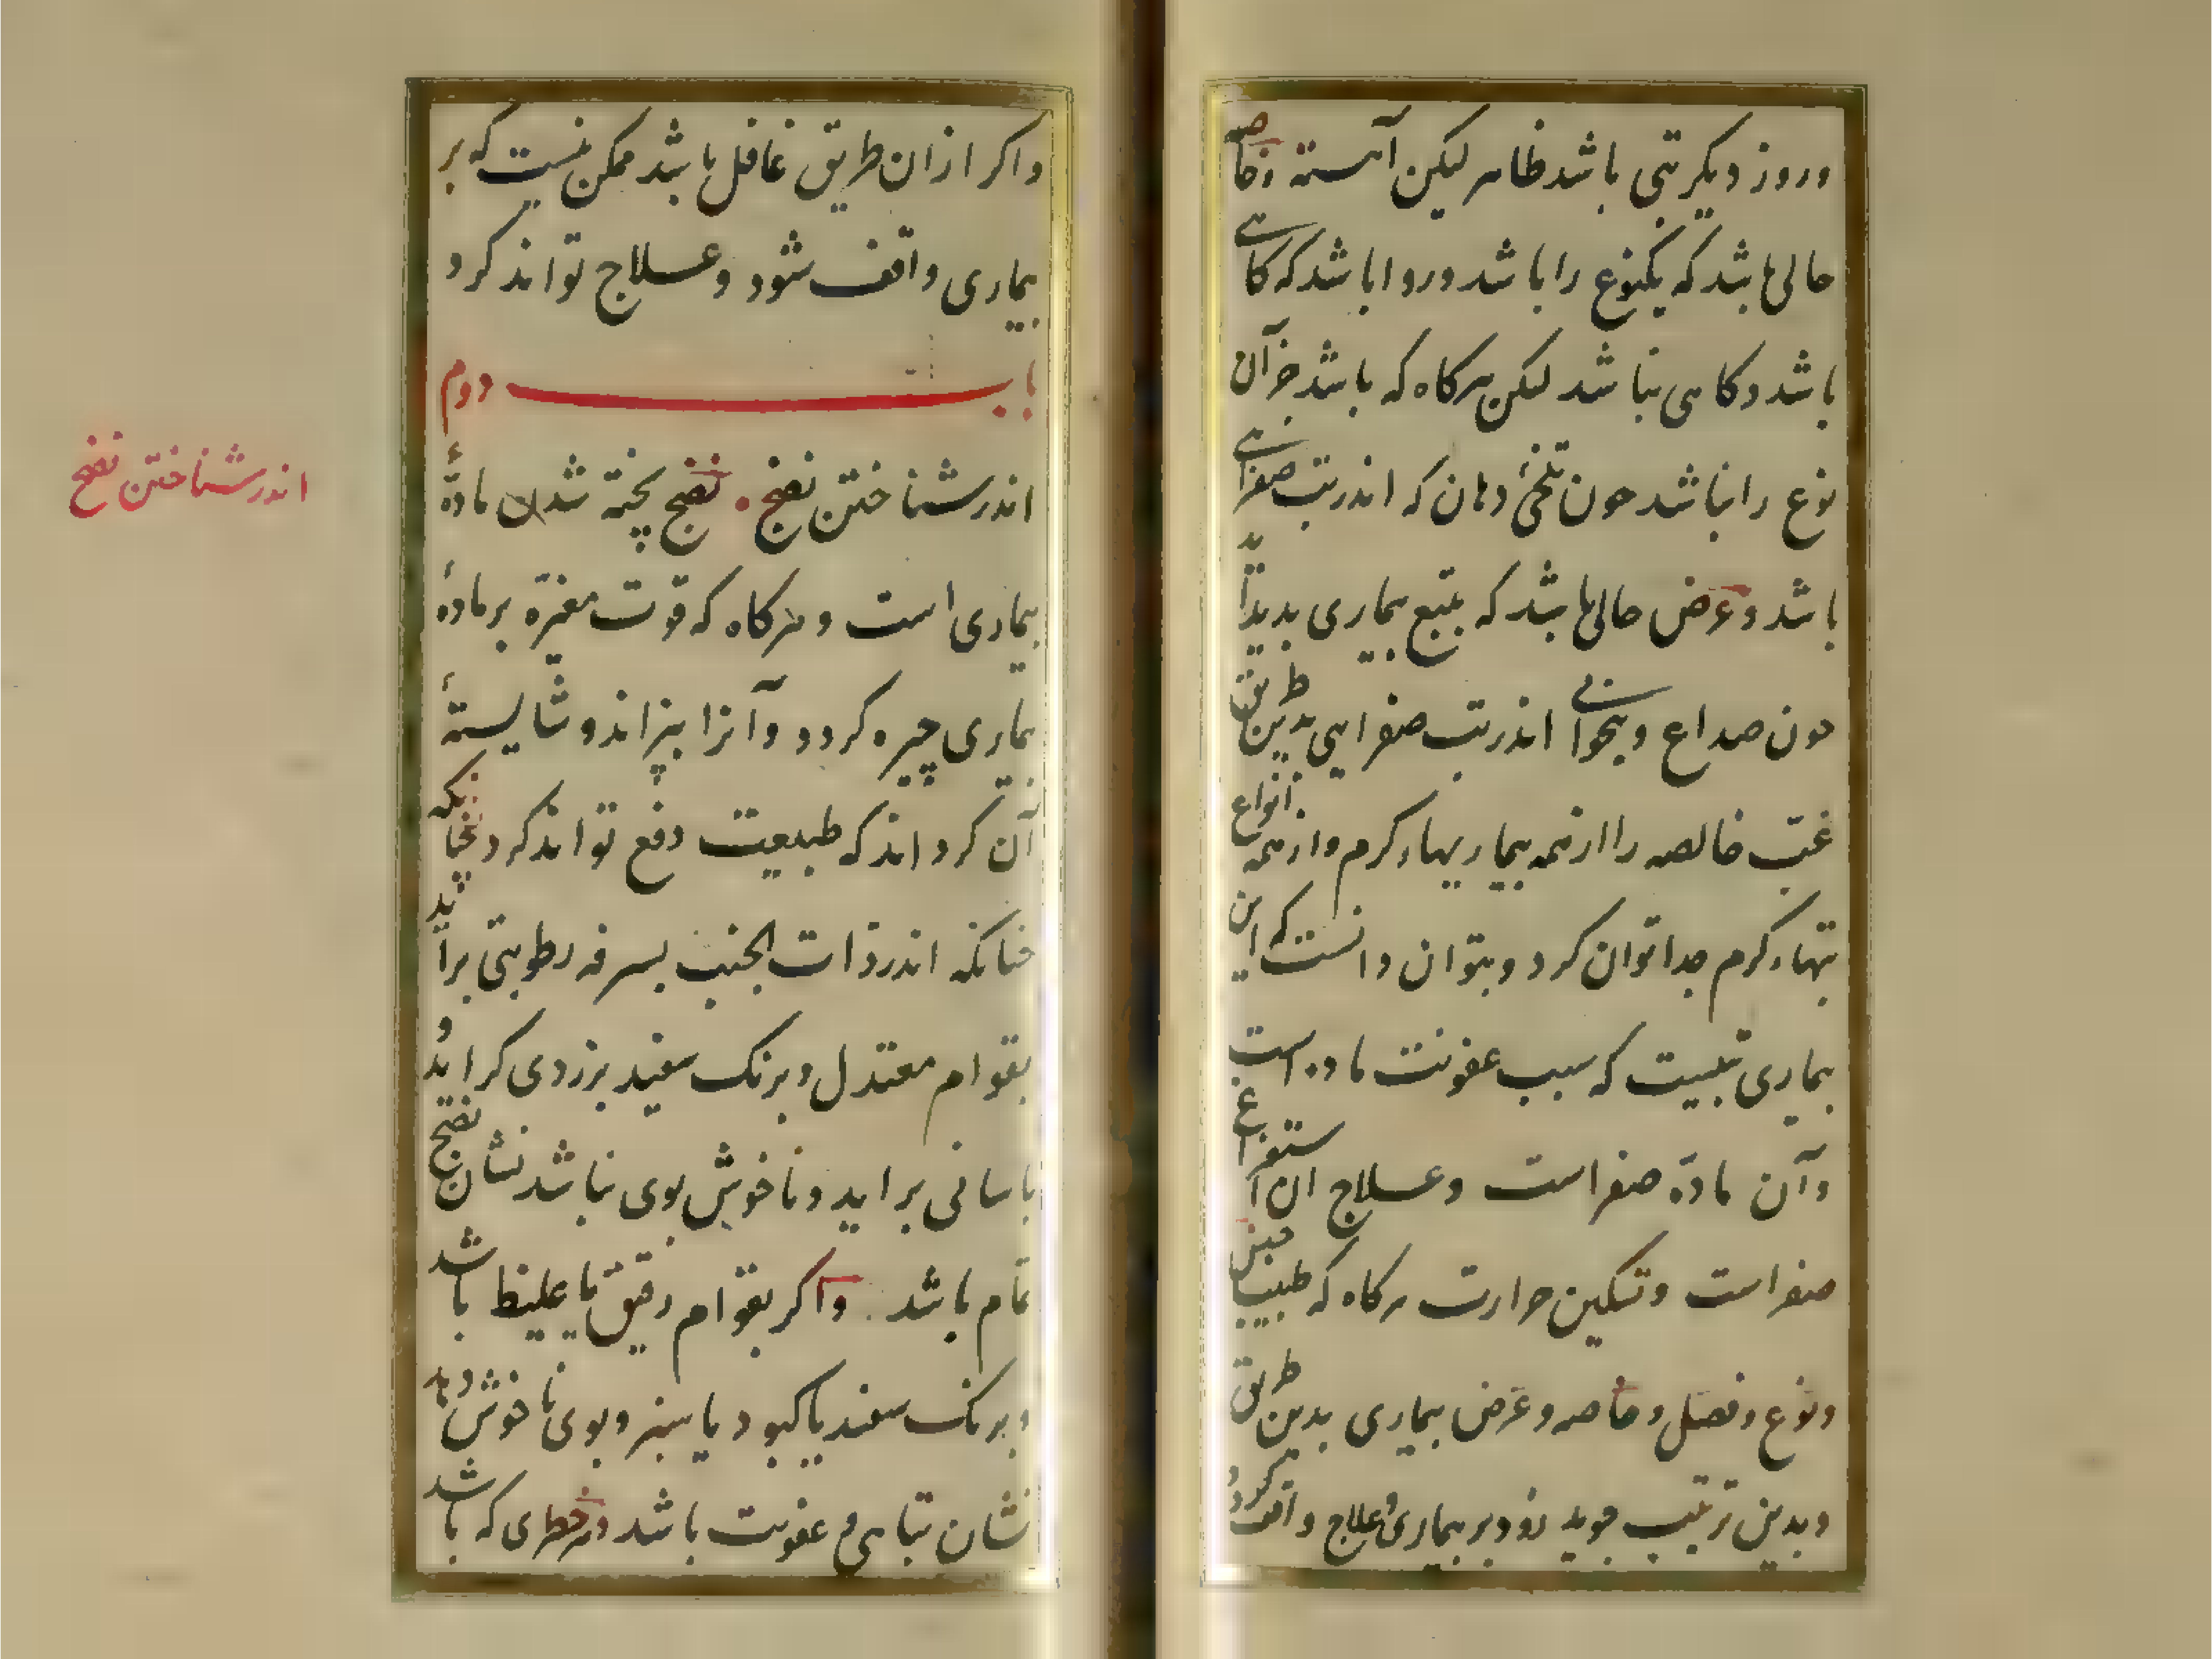 وروز دیکر تبی باشد ظاهر لیکن آهسته وخاصه
حالی باشد که یکنوع را باشد وروا باشد که کاهی
باشد وکاهی نباشد لیکن هرکاه که باشد جز آن
نوع را نباشد جون تلخیٔ دهان که اندر تب صفراهی
باشد وعَرَض حالی باشد که بتبع بیماری بدید آید
جون صداع وبیخوابی اندر تب صفرایی بدین طریق
غبّ خالصه را از همه بیماریهاء کرم واز همه انواع
تبهاء کرم جدا توان کرد وبتوان دانست که این
بیماری تبیست که سبب عفونت ماده است
وآن مادّهٔ صفراست وعلاج ان استفراغ
صفراست وتسکین حرارت هرکاه که طبیب جنس
ونوع وفصل وخاصه وعَرَض بیماری بدین طریق
وبدین ترتیب جوید زود بر بیماری وعلاج واقف کردد
واکر ازان طریق غافل باشد ممکن نیست که بر
بیماری واقف شود وعلاج تواند کرد
باب دوم
اندر شناختن نضج • نضج پخته شدن مادّهٔ
بیماری است وهرکاه که قوت مغیّره بر مادهٔ
بیماری چیره کردد وآنرا بپزاند وشایستهٔ
آن کرداند که طبیعت دفع تواند کرد بچنانکه
جنانکه اندر ذات الجنب بسرفه رطوبتی برآید
بقوام معتدل وبرنک سفید بزردی کراید و
باسانی براید وناخوش بوی نباشد نشان نضج
تمام باشد واکر بقوام رقیق یا غلیظ باشد
وبرنک سفید یا کبود یا سبز وبوی ناخوش دهد
نشان تباهی و عفونت باشد وهر خطری که باشد
اندر شناختن نضج